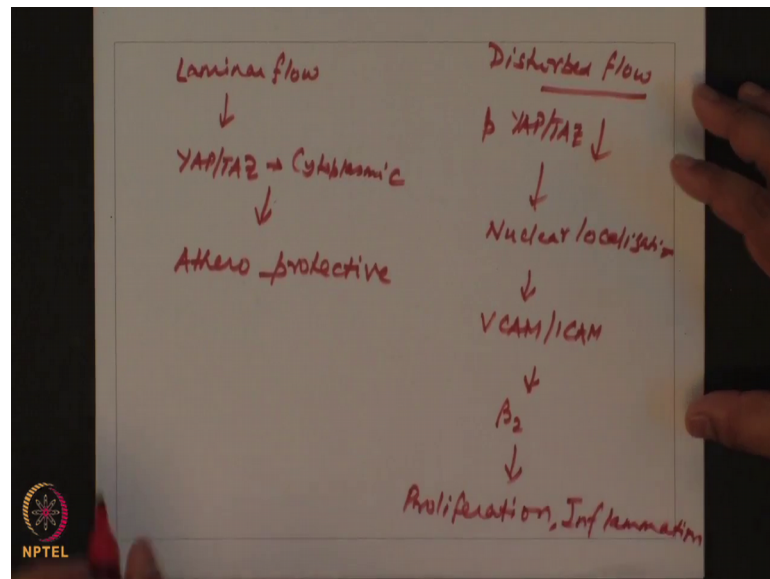 Laminar flow
↓
YAP/TAZ → Cytoplasmic
↓
Athero_protective
Disturbed flow
p YAP/TAZ ↓
↓
Nuclear localisation
↓
VCAM/ICAM
↓
β2
↓
Proliferation, Inflammation
NPTEL